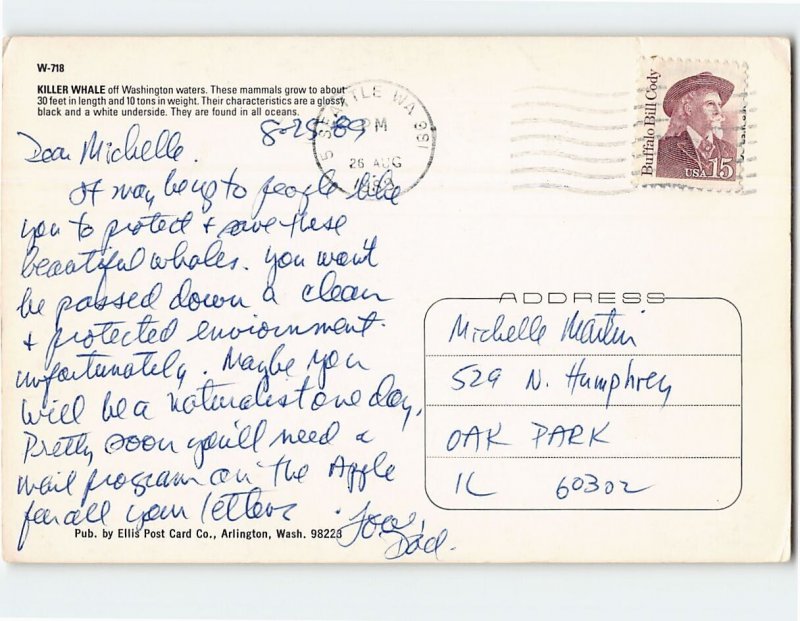 W-718
KILLER WHALE off Washington waters. These mammals grow to about
30 feet in length and 10 tons in weight. Their characteristics are a glossy
black and a white underside. They are found in all oceans.
SEATTLE WA 981
PM
26 AUG
1989
Buffalo Bill Cody
USA 15
8-25-89
Dear Michelle.
It may be up to people like
you to protect + save these
beautiful whales. You won't
be passed down a clean
+ protected enviornment.
unfortunately. Maybe you
will be a naturalist one day.
Pretty soon you'll need a
mail program on the Apple
for all your letters
Love,
Dad.
ADDRESS
Michelle Martin
529 N. Humphrey
OAK PARK
IL 60302
Pub. by Ellis Post Card Co., Arlington, Wash. 98223